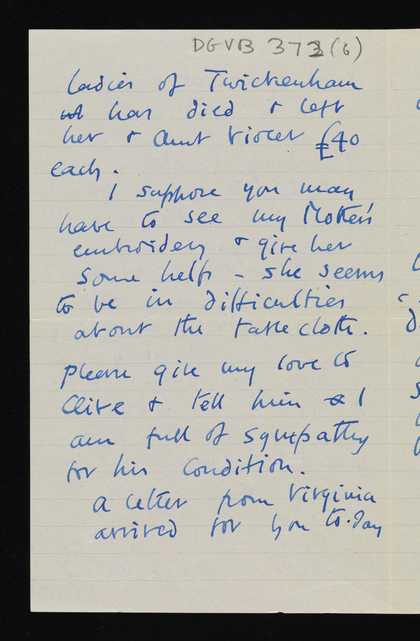 DGVB 373 (6)
ladies of Twickenham
has died & left
her & Aunt Violet £40
each.
I suppose you may
have to see my Mother's
embroidery & give her
some help - she seems
to be in difficulties
about the table cloth.
Please give my love to
Clive & tell him I
am full of sympathy
for his condition.
A letter from Virginia
arrived for you to-day